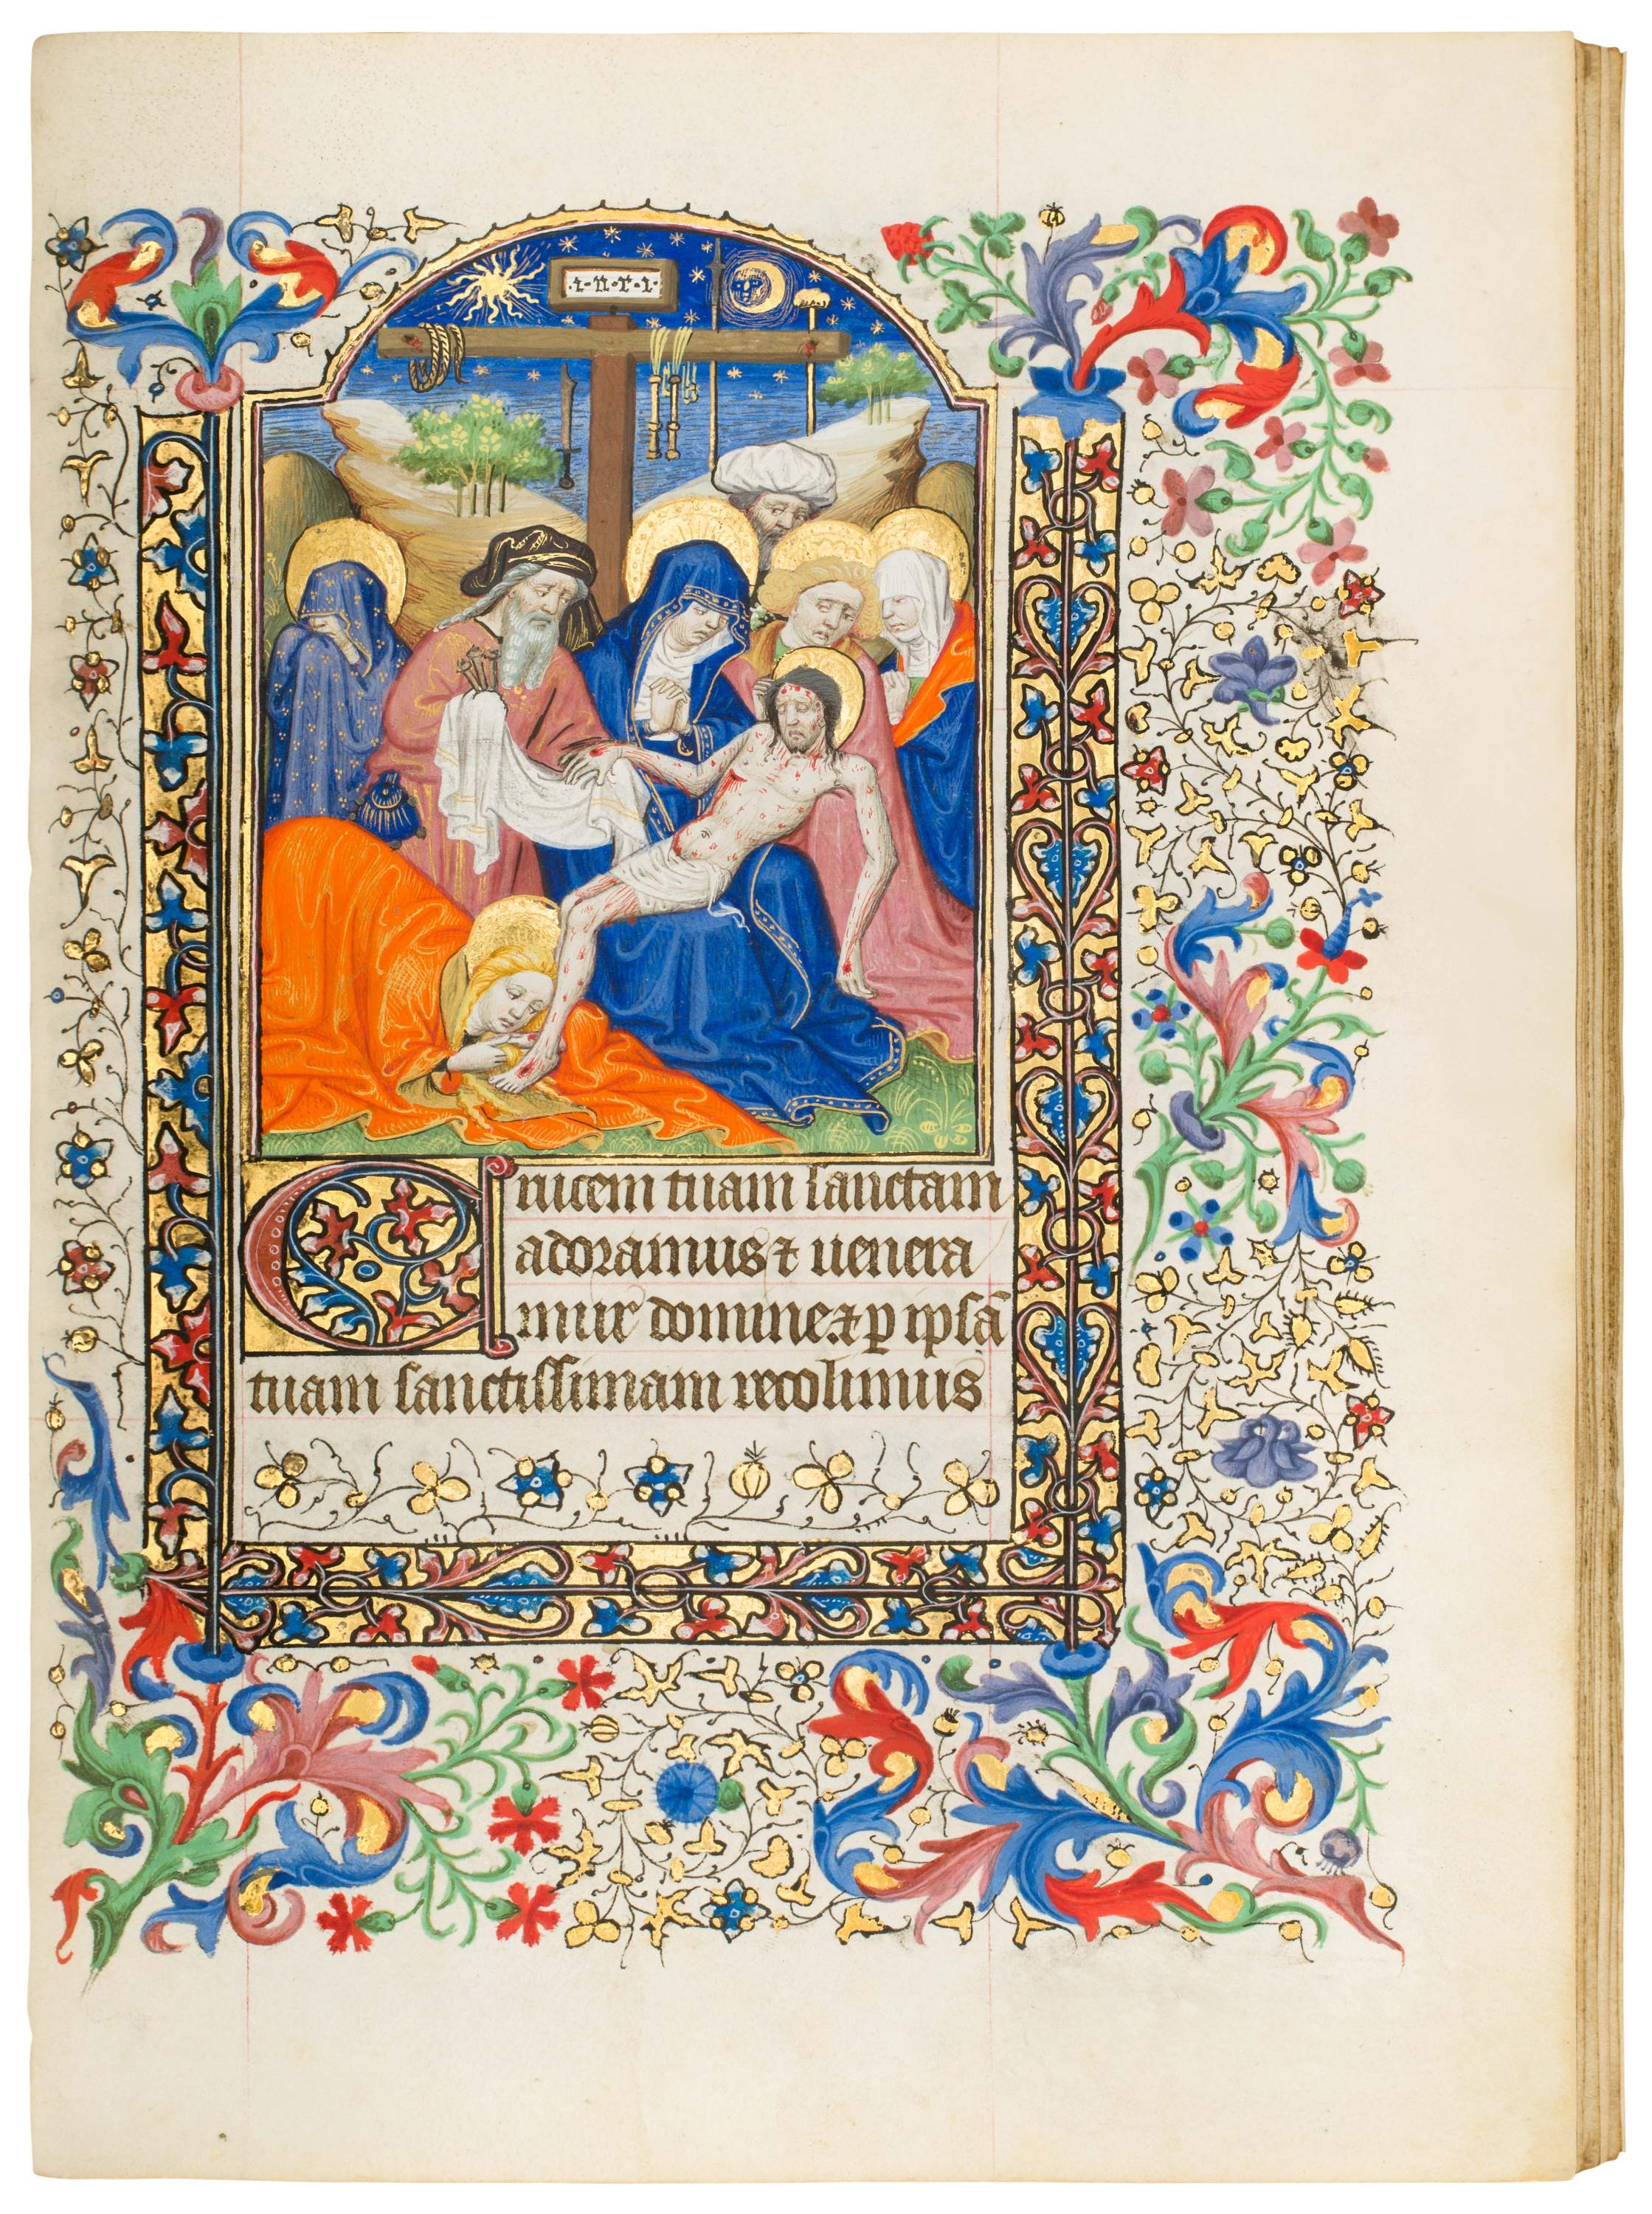 ·i·n·r·i·
Crucem tuam sanctam
adoramus ⁊ uenera
mur domine.⁊ ꝑ ipsā
tuam sanctissimam recolimus